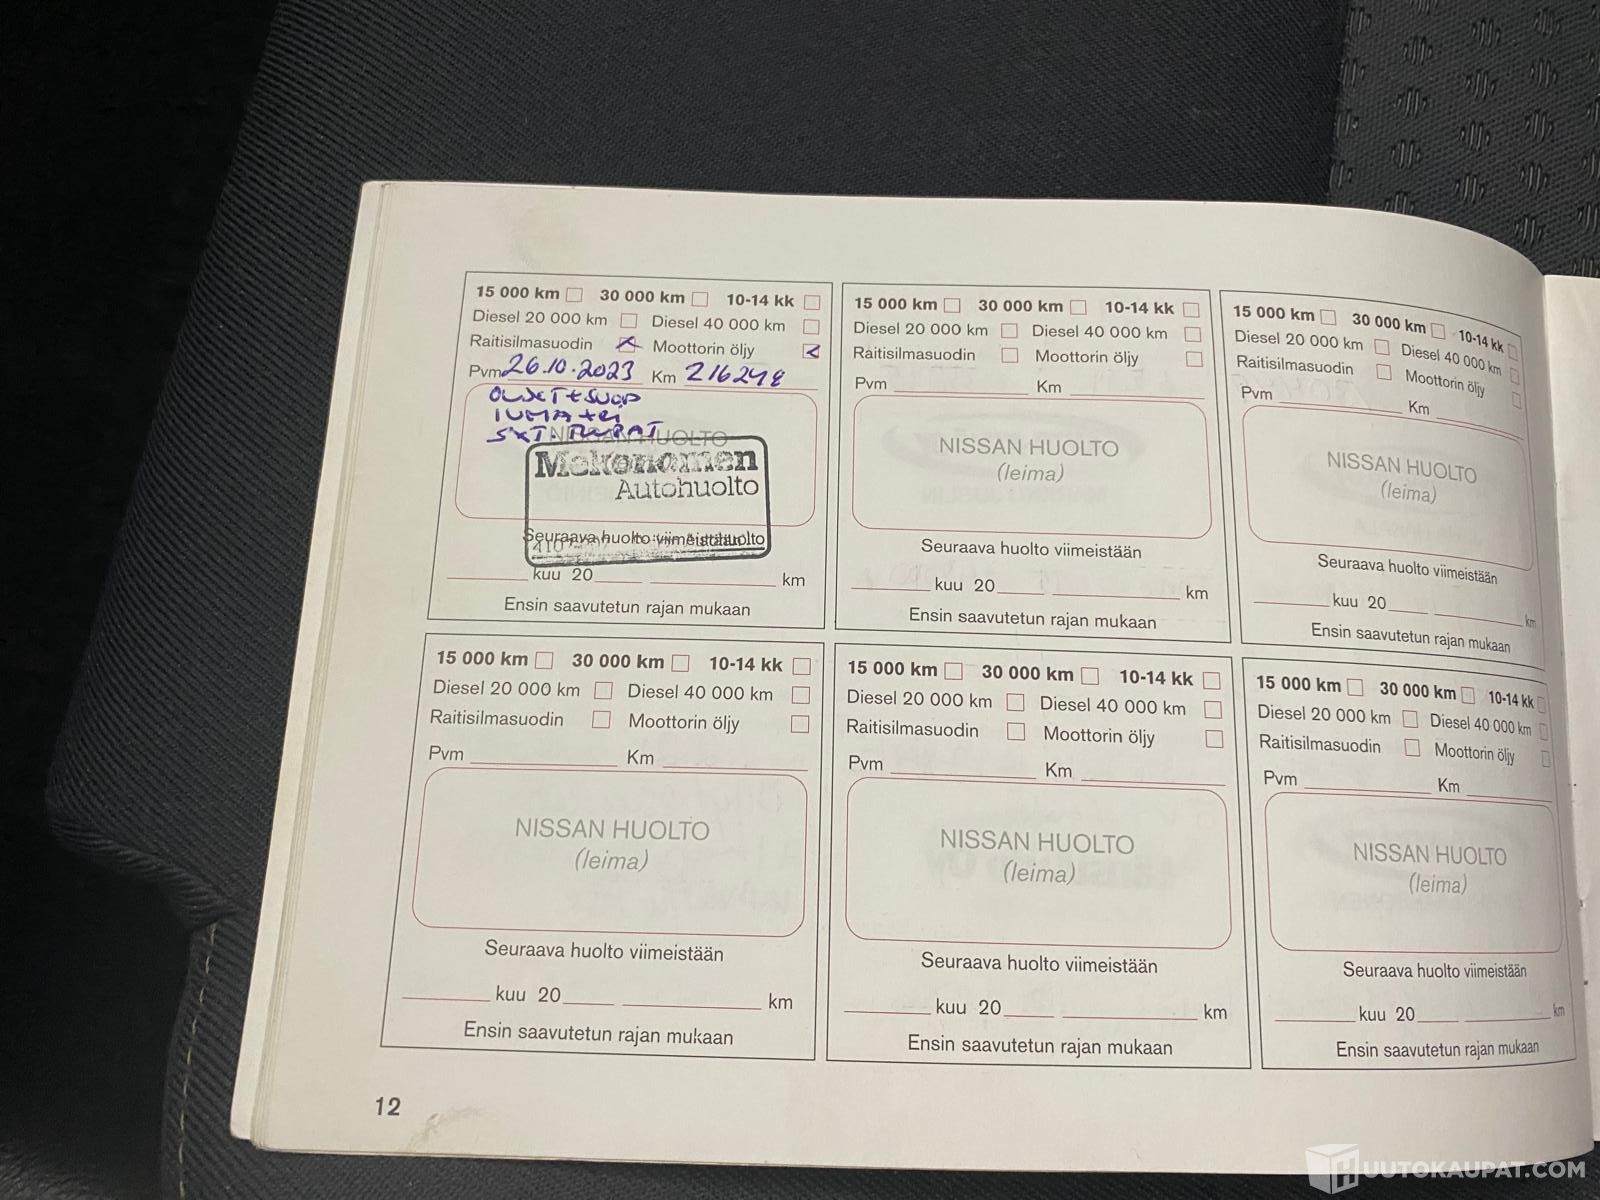 15 000 km 30 000 km 10-14 kk
Diesel 20 000 km Diesel 40 000 km
Raitisilmasuodin Moottorin öljy
Pvm 26.10.2023 Km 216248
NISSAN HUOLTO
Mekonomen
Autohuolto
Seuraava huolto viimeistään
kuu 20 km
Ensin saavutetun rajan mukaan
15 000 km 30 000 km 10-14 kk
Diesel 20 000 km Diesel 40 000 km
Raitisilmasuodin Moottorin öljy
Pvm Km
NISSAN HUOLTO
(leima)
Seuraava huolto viimeistään
kuu 20 km
Ensin saavutetun rajan mukaan
15 000 km 30 000 km 10-14 kk
Diesel 20 000 km Diesel 40 000 km
Raitisilmasuodin Moottorin öljy
Pvm Km
NISSAN HUOLTO
(leima)
Seuraava huolto viimeistään
kuu 20 km
Ensin saavutetun rajan mukaan
15 000 km 30 000 km 10-14 kk
Diesel 20 000 km Diesel 40 000 km
Raitisilmasuodin Moottorin öljy
Pvm Km
NISSAN HUOLTO
(leima)
Seuraava huolto viimeistään
kuu 20 km
Ensin saavutetun rajan mukaan
15 000 km 30 000 km 10-14 kk
Diesel 20 000 km Diesel 40 000 km
Raitisilmasuodin Moottorin öljy
Pvm Km
NISSAN HUOLTO
(leima)
Seuraava huolto viimeistään
kuu 20 km
Ensin saavutetun rajan mukaan
15 000 km 30 000 km 10-14 kk
Diesel 20 000 km Diesel 40 000 km
Raitisilmasuodin Moottorin öljy
Pvm Km
NISSAN HUOLTO
(leima)
Seuraava huolto viimeistään
kuu 20 km
Ensin saavutetun rajan mukaan
12
HUUTOKAUPAT.COM